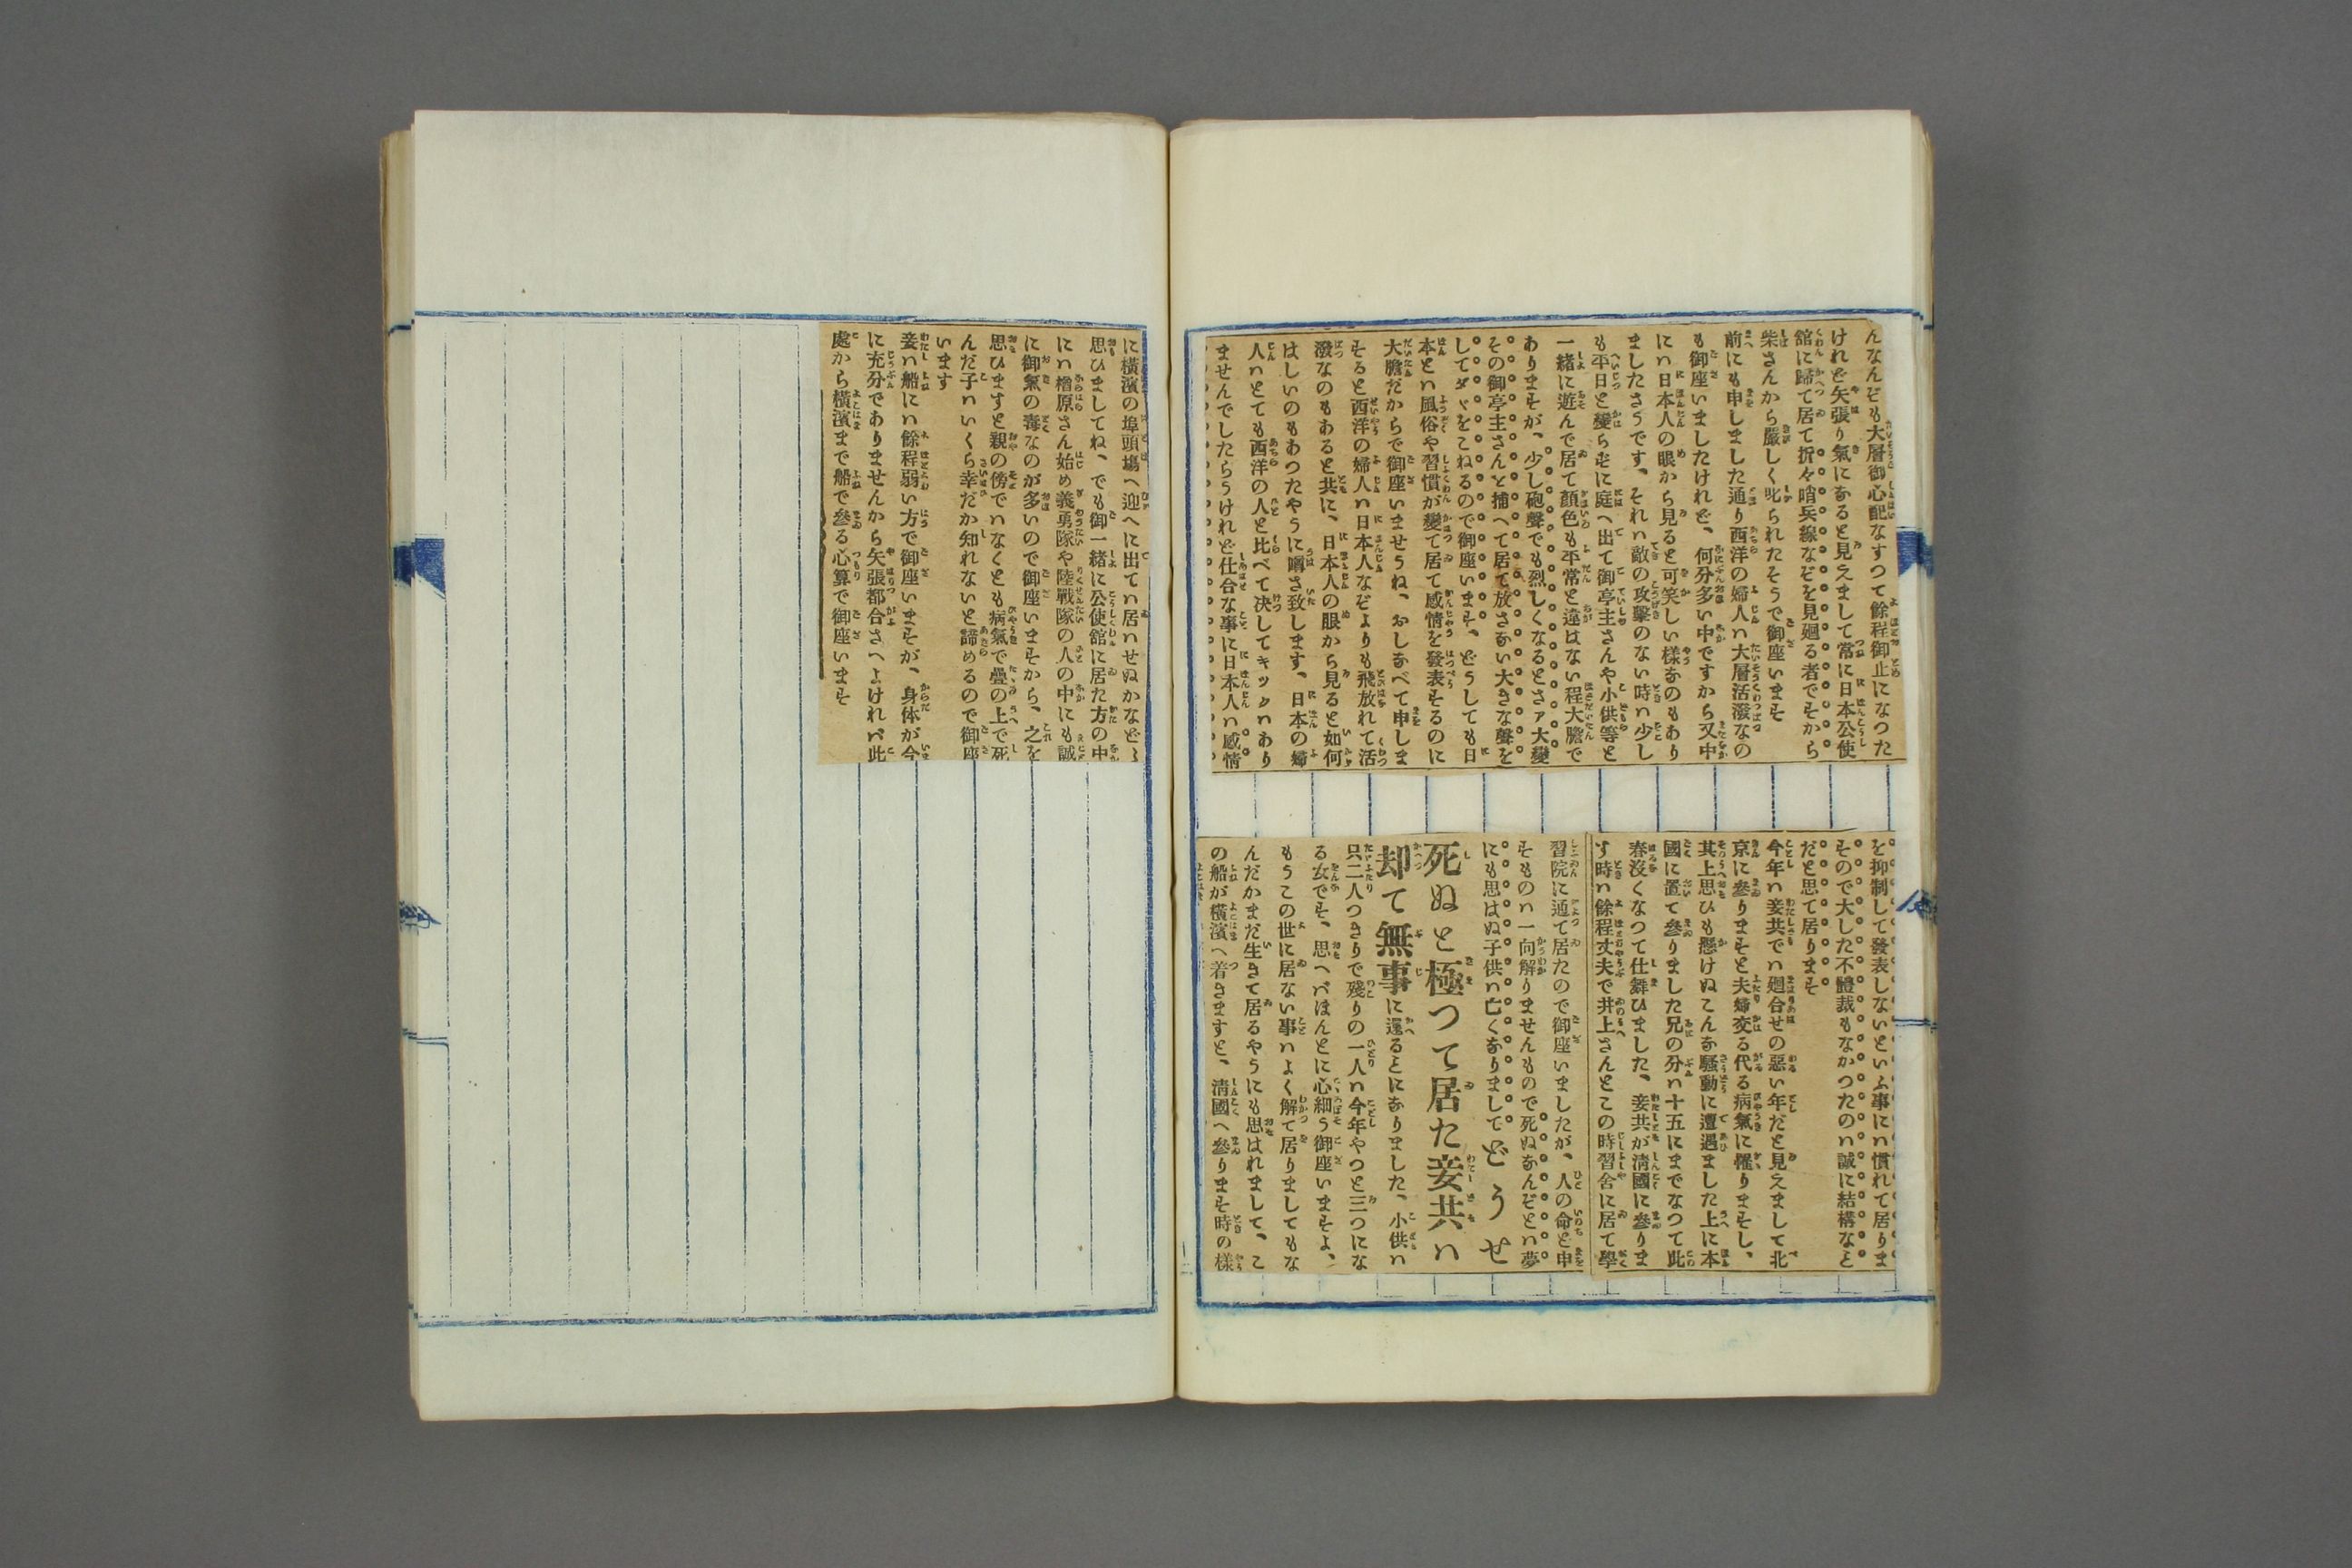 んなんぞも大層御心配なすつて餘程御止になつた
けれど矢張り氣になると見えまして常に日本公使
舘に歸て居て折々哨兵線なぞを見廻る者ですから
柴さんから嚴しく叱られたそうで御座います
前にも申しました通り西洋の婦人ハ大層活潑なの
も御座いましたけれど、何分多い中ですから又中
にハ日本人の眼から見ると可笑しい樣なのもあり
ましたさうです、それハ敵の攻擊のない時ハ少し
も平日と變らずに庭へ出て御亭主さんや小供等と
一緒に遊んで居て顏色も平常と違はない程大膽で
ありますが、少し砲聲でも烈しくなるとさア大變
その御亭主さんを捕へて居て放さない大きな聲を
してダヾをこねるので御座います、どうしても日
本とハ風俗や習慣が變て居て感情を發表するのに
大膽だからで御座いませうね、おしなべて申しま
すると西洋の婦人ハ日本人なぞよりも飛放れて活
潑なのもあると共に、日本人の眼から見ると如何
はしいのもあつたやうに噂さ致します、日本の婦
人ハとても西洋の人と比べて决してキツクハあり
ませんでしたらうけれど仕合な事に日本人ハ感情
を抑制して發表しないといふ事にハ慣れて居りま
すので大した不體裁もなかつたのハ誠に結構なと
だと思て居ります
今年ハ妾共でハ廻合せの惡い年だと見えまして北
京に參りますと夫婦交る代る病氣に罹りますし、
其上思ひも懸けぬこんな騷動に遭遇ました上に本
國に置て參りました兄の分ハ十五にまでなつて此
春沒くなつて仕舞ひました、妾共が淸國に參りま
す時ハ餘程丈夫で井上さんとこの時習舍に居て學
習院に通て居たので御座いましたが、人の命と申
すものハ一向解りませんもので死ぬなんぞとハ夢
にも思はぬ子供ハ亡くなりましてどうせ
死ぬと極つて居た妾共ハ
却て無事に還るとになりました、小供ハ
只二人つきりで殘りの一人ハ今年やつと三つにな
る女です、思へバほんとに心細う御座いますよ、
もうこの世に居ない事ハよく解て居りましてもな
んだかまだ生きて居るやうにも思はれまして、こ
の船が橫濱へ着きますと、淸國へ參ります時の樣
に橫濱の埠頭塲へ迎へに出てハ居ハせぬかなどゝ
思ひましてね、でも御一緒に公使舘に居た方の中
にハ楢原さん始め義勇隊や陸戰隊の人の中にも誠
に御氣の毒なのが多いので御座いますから、之を
思ひますと親の傍でハなくとも病氣で疊の上で死
んだ子ハいくら幸だか知れないと諦めるので御座
います
妾ハ船にハ餘程弱い方で御座いますが、身体が今
に充分でありませんから矢張都合さへよければ此
處から橫濱まで船で參る心算で御座います